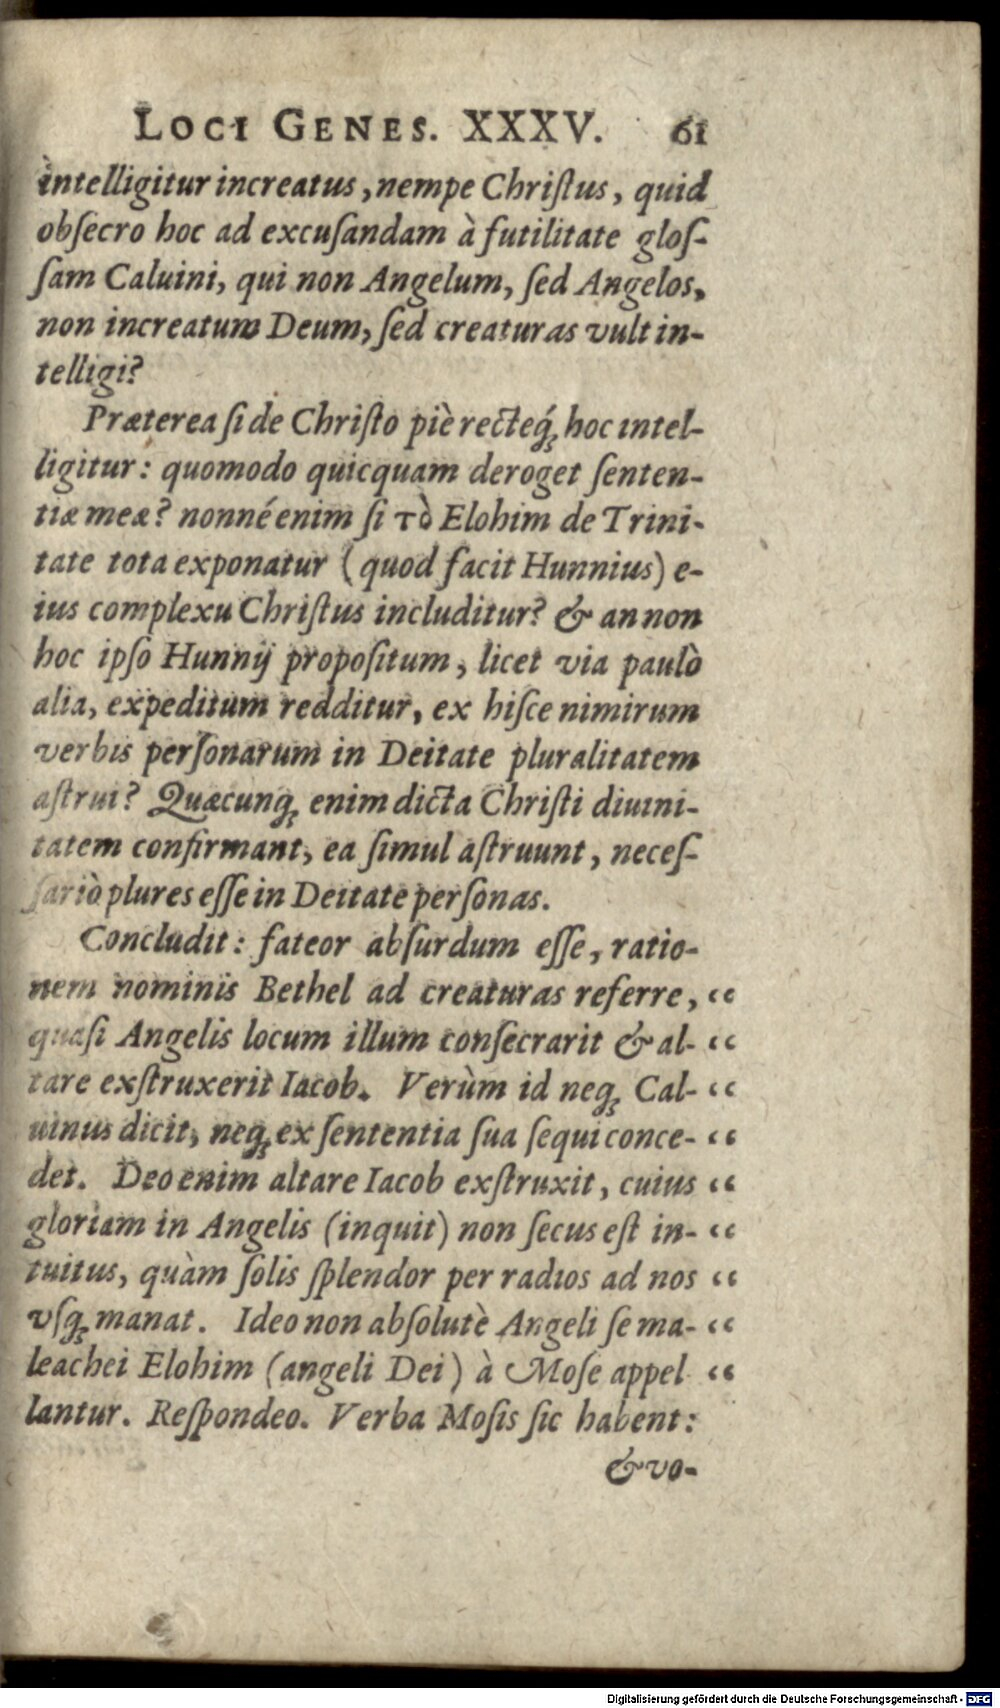 LOCI GENES. XXXV. 61
intelligitur increatus, nempe Chriſtus, quid
obſecro hoc ad excuſandam à futilitate gloſ-
ſam Caluini, qui non Angelum, ſed Angelos,
non increatum Deum, ſed creaturas vult in-
telligi?
Præterea ſi de Chriſto piè recteq́ꝫ hoc intel-
ligitur: quomodo quicquam deroget ſenten-
tiæ meæ? nonné enim ſi τὸ Elohim de Trini-
tate tota exponatur (quod facit Hunnius) e-
ius complexu Chriſtus includitur? & an non
hoc ipſo Hunnij propoſitum, licet via paulò
alia, expeditum redditur, ex hiſce nimirum
verbis perſonarum in Deitate pluralitatem
aſtrui? Quæcunqꝫ enim dicta Chriſti diuini-
tatem confirmant, ea ſimul aſtruunt, neceſ-
ſariò plures eſſe in Deitate perſonas.
Concludit: fateor abſurdum eſſe, ratio-
nem nominis Bethel ad creaturas referre, “
quaſi Angelis locum illum conſecrarit & al- “
tare exſtruxerit Iacob. Verùm id neqꝫ Cal- “
uinus dicit, neqꝫ ex ſententia ſua ſequi conce- “
det. Deo enim altare Iacob exſtruxit, cuius “
gloriam in Angelis (inquit) non ſecus eſt in- “
tuitus, quàm ſolis ſplendor per radios ad nos “
vſqꝫ manat. Ideo non abſolutè Angeli ſe ma- “
leachei Elohim (angeli Dei) à Moſe appel “
lantur. Reſpondeo. Verba Moſis ſic habent:
& vo-
Digitalisierung gefördert durch die Deutsche Forschungsgemeinschaft - DFG